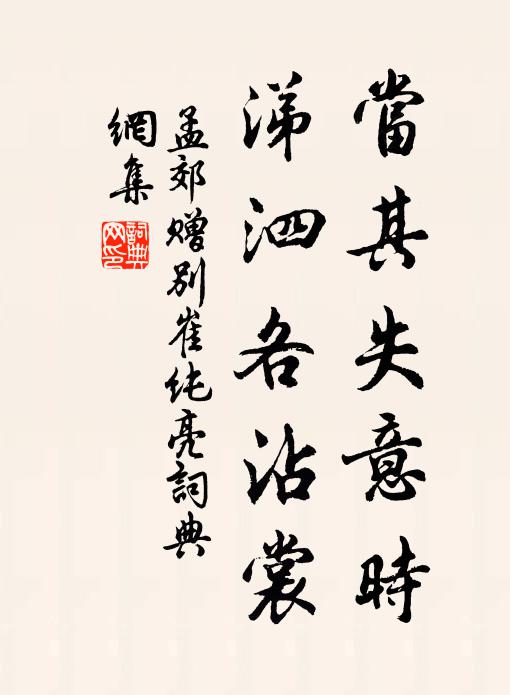 當其失意時
涕泗各沾裳
孟郊贈別崔純亮詞典
網集
詞典
网印